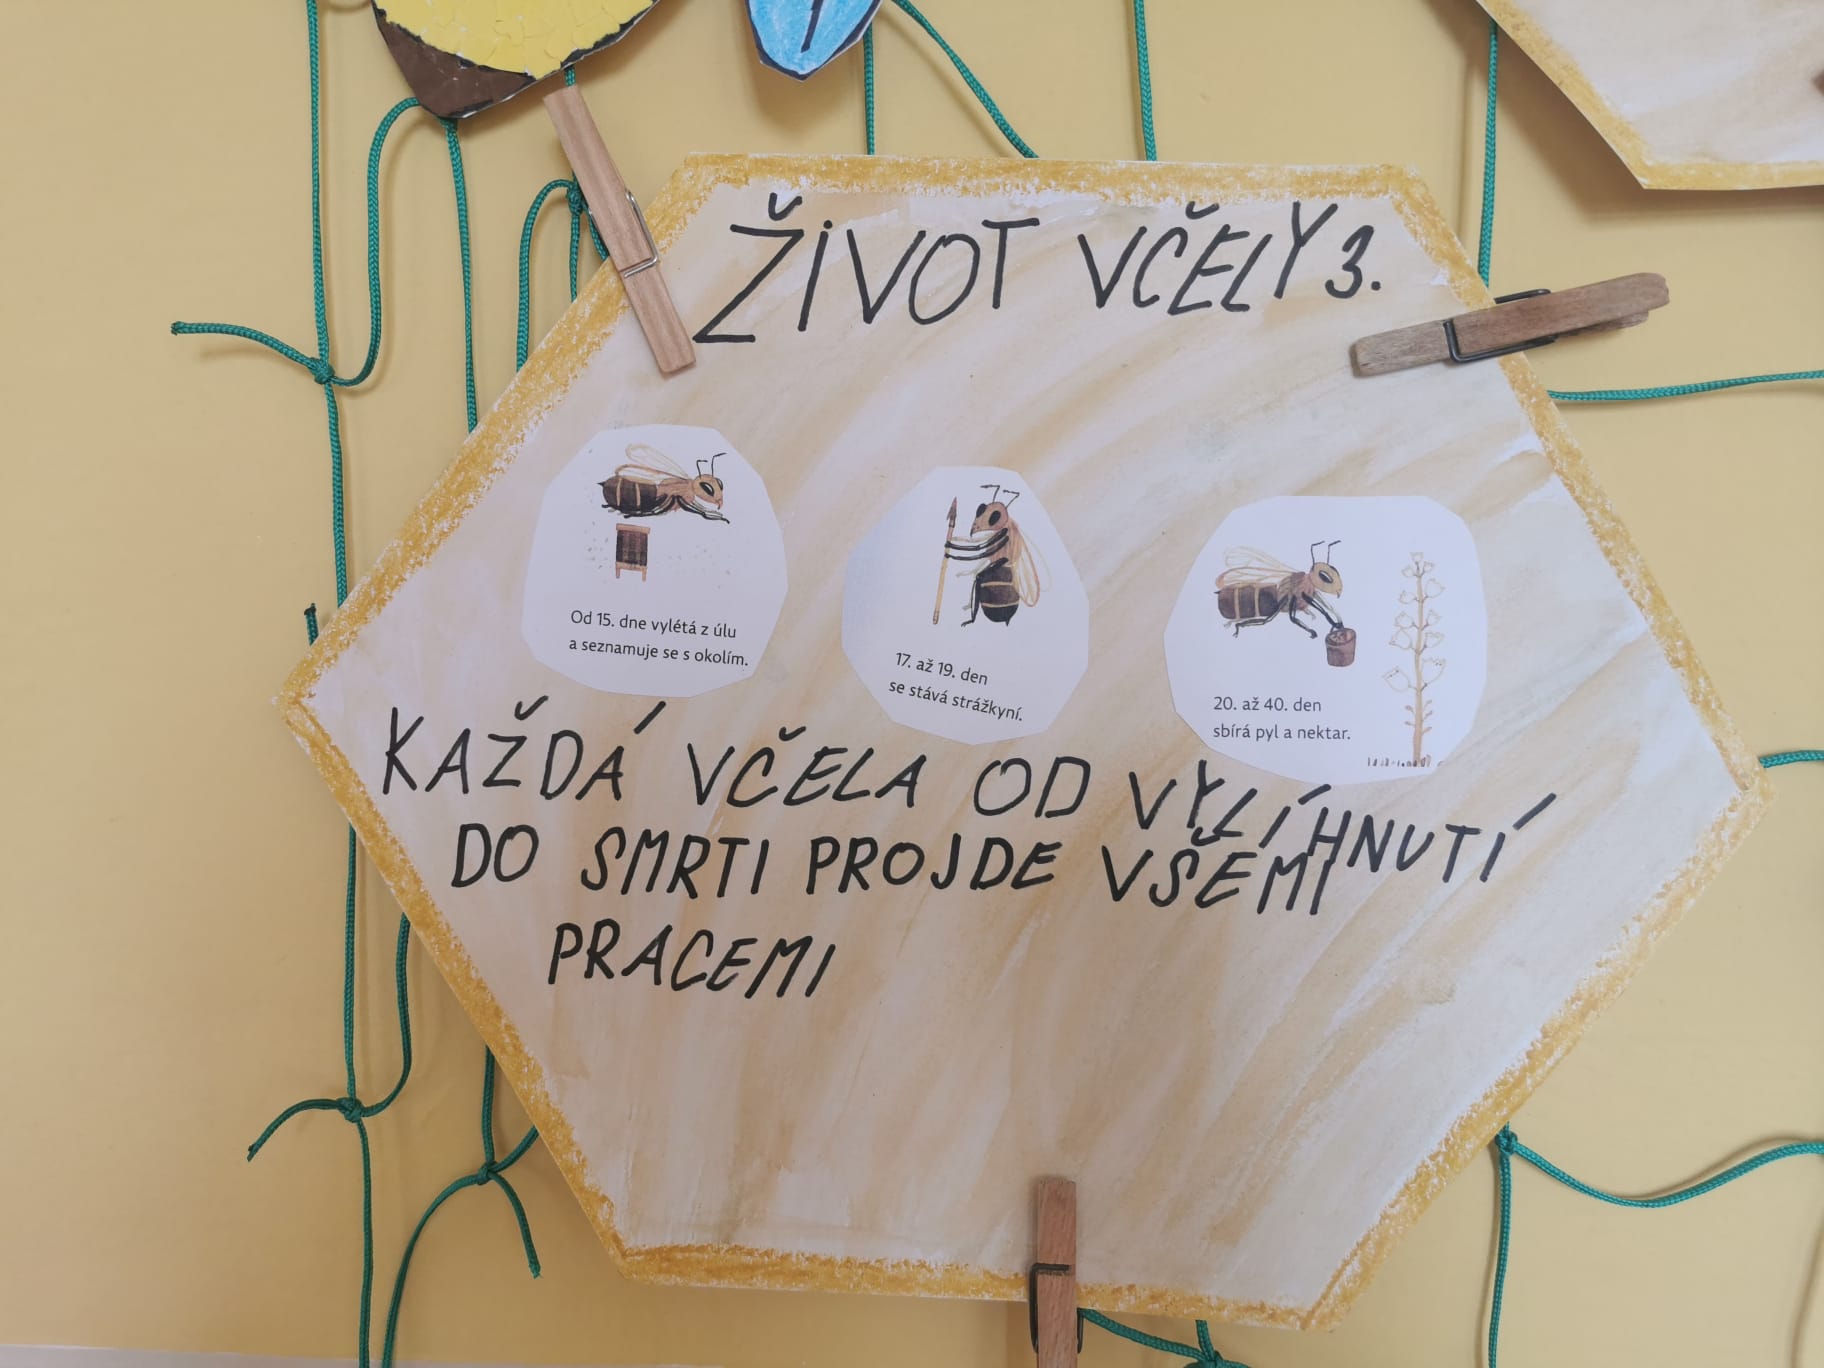 ŽIVOT VČELY 3.
Od 15. dne vylétá z úlu
a seznamuje se s okolím.
17. až 19. den
se stává strážkyní.
20. až 40. den
sbírá pyl a nektar.
KAŽDÁ VČELA OD VYLÍHNUTÍ
DO SMRTI PROJDE VŠEMI
PRACEMI